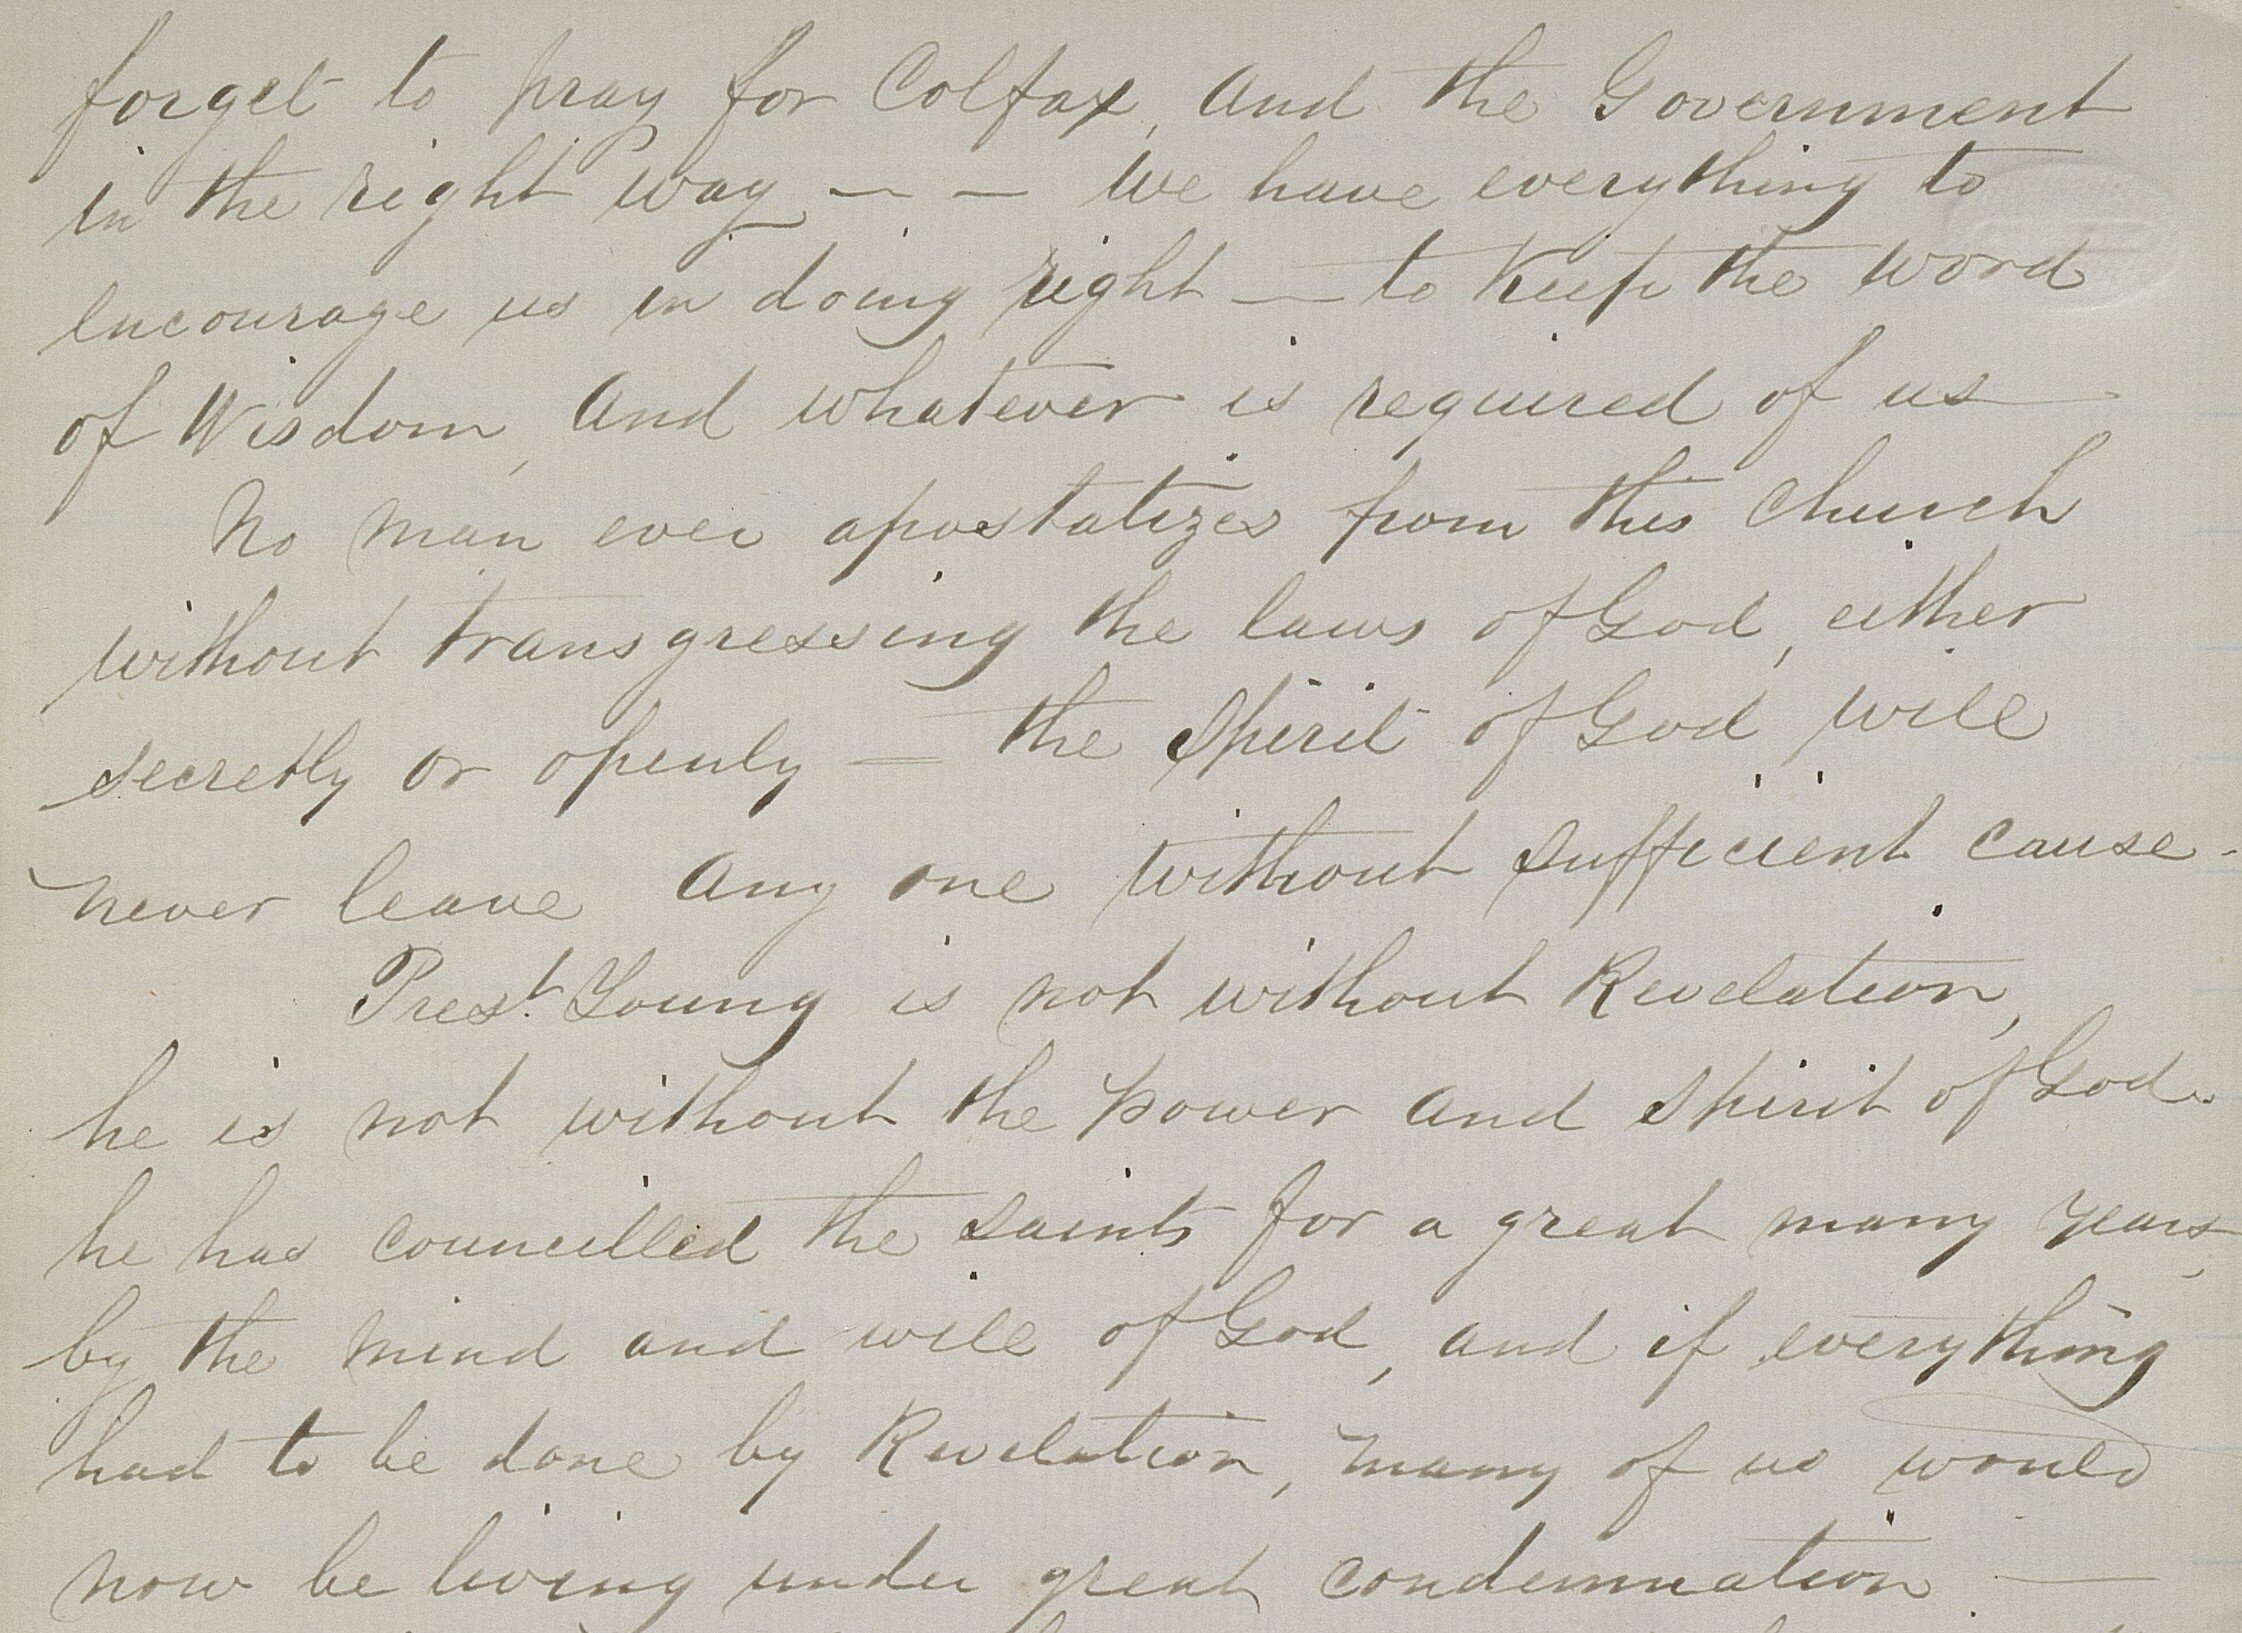 forget to pray for Colfax, and the Government
in the right way — — We have everything to
encourage us in doing right — to keep the word
of Wisdom, and whatever is required of us —
No man ever apostatizes from this Church
without transgressing the laws of God, either
secretly or openly — the Spirit of God will
never leave any one without sufficient cause -
Prest. Young is not without Revelation,
he is not without the power and spirit of God.
he has councilled the saints for a great many years,
by the mind and will of God, and if everything
had to be done by Revelation, many of us would
now be living under great condemnation —